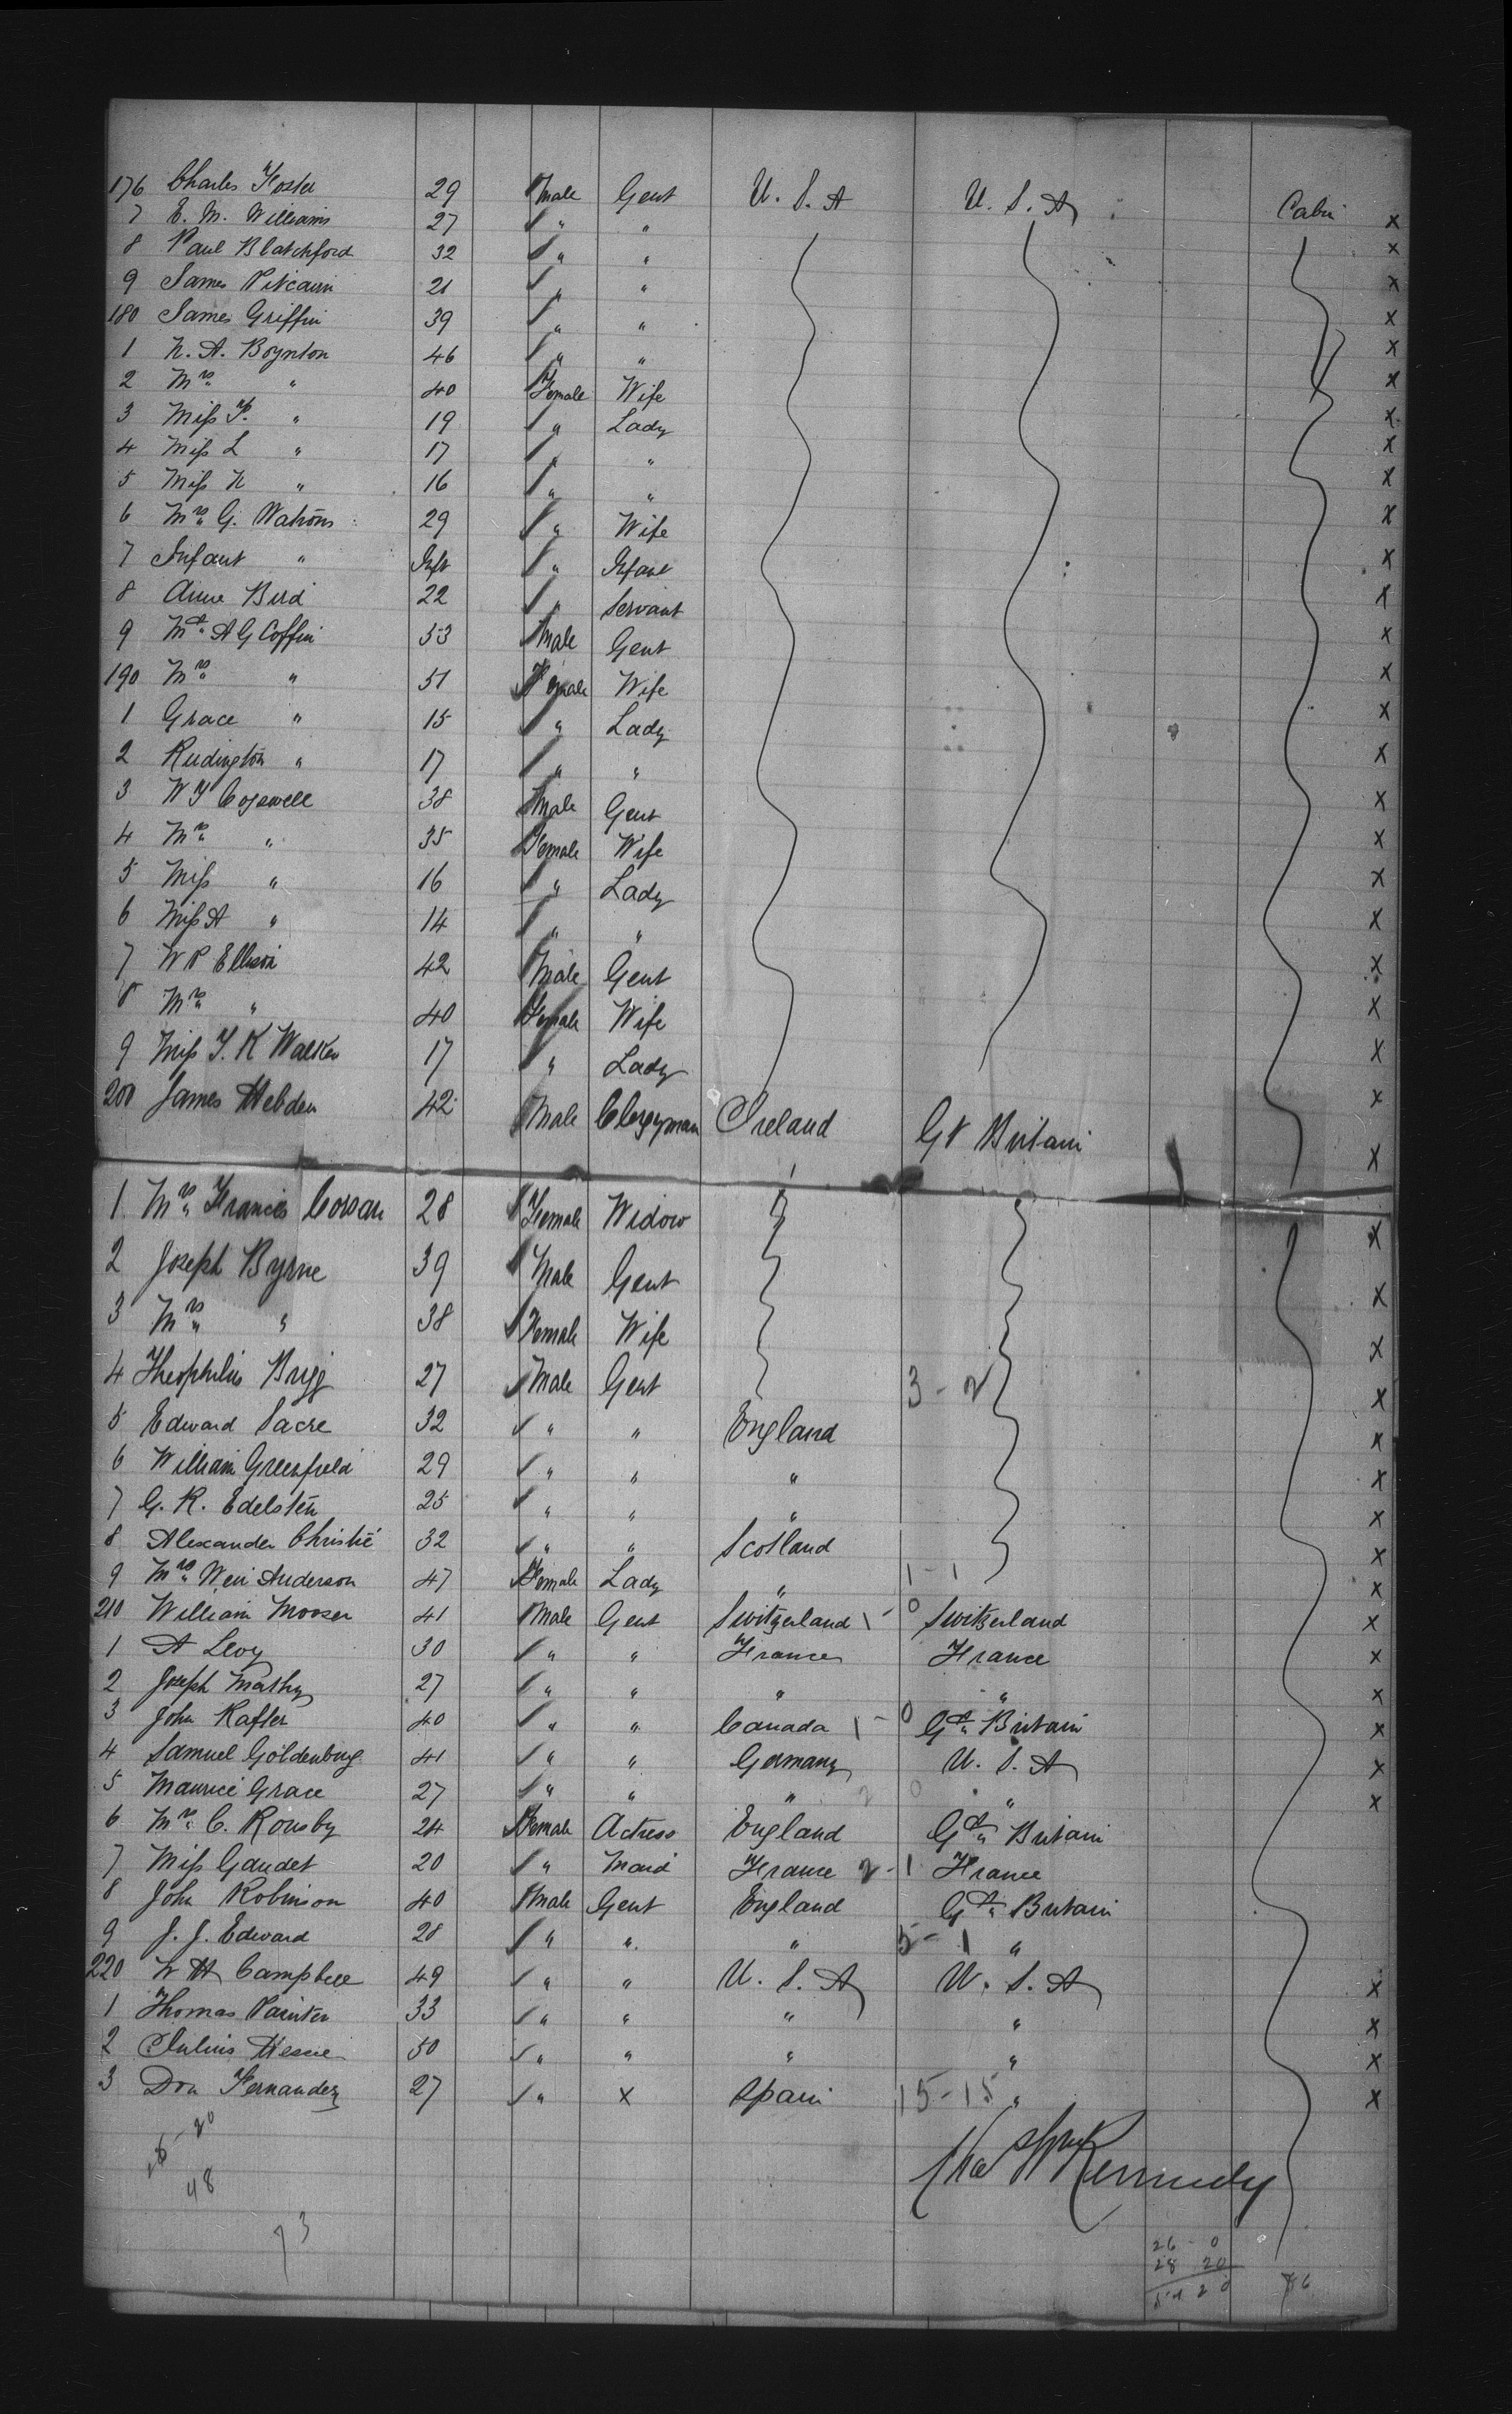 176 Charles Foster 29 Male Gent U.S.A U.S.A Cabin x
7 E. M. Williams 27 " " x
8 Paul Blatchford 32 " " x
9 James Pitcairn 21 " " x
180 James Griffin 39 " " x
1 N. A. Boynton 46 " " x
2 Mrs " 40 Female Wife x
3 Miss F. " 19 " Lady x
4 Miss L " 17 " " x
5 Miss N " 16 " " x
6 Mrs G. Watrous 29 " Wife x
7 Infant " Inft " Infant x
8 Anne Bird 22 " Servant x
9 Mr A G Coffin 53 Male Gent x
190 Mrs " 51 Female Wife x
1 Grace " 15 " Lady x
2 Rudington " 17 " " x
3 W Y Cogswell 38 Male Gent x
4 Mrs " 35 Female Wife x
5 Miss " 16 " Lady x
6 Miss A " 14 " " x
7 W P Ellison 42 Male Gent x
8 Mrs " 40 Female Wife x
9 Miss Y. K Walker 17 " Lady x
200 James Hebden 42 Male Clergyman Ireland Gt Britain x
1 Mrs Francis Corsan 28 Female Widow x
2 Joseph Byrne 39 Male Gent x
3 Mrs " 38 Female Wife x
4 Theophilus Brigg 27 Male Gent 3-2 x
5 Edward Sacre 32 " " England x
6 William Greenfield 29 " " " x
7 G. R. Edelsten 25 " " " x
8 Alexander Christie 32 " " Scotland x
9 Mrs Weir Anderson 47 Female Lady " 1-1 x
210 William Mooser 41 Male Gent Switzerland 1-0 Switzerland x
1 A Levy 30 " " France France x
2 Joseph Mathy 27 " " " " x
3 John Rafter 40 " " Canada 1-0 Gt Britain x
4 Samuel Goldenburg 41 " " Germany U.S.A x
5 Maurice Grace 27 " " " 2 0 " x
6 Mrs C. Rousby 24 Female Actress England Gt Britain
7 Miss Gaudet 20 " Maid France 2-1 France
8 John Robinson 40 Male Gent England Gt Britain
9 J. J. Edward 28 " " " 5-1 "
220 W H Campbell 49 " " U.S.A U.S.A x
1 Thomas Painter 33 " " " " x
2 Julius Hesse 50 " " " " x
3 Don Fernandez 27 " x Spain 15-15 " x
48
73
Kennedy
26 - 0
28 20
54 20
76